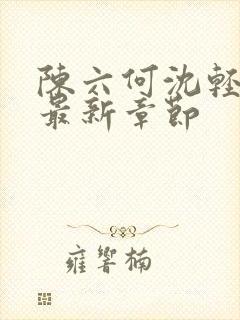 陳六何沈輕
最新章節
雍響楠